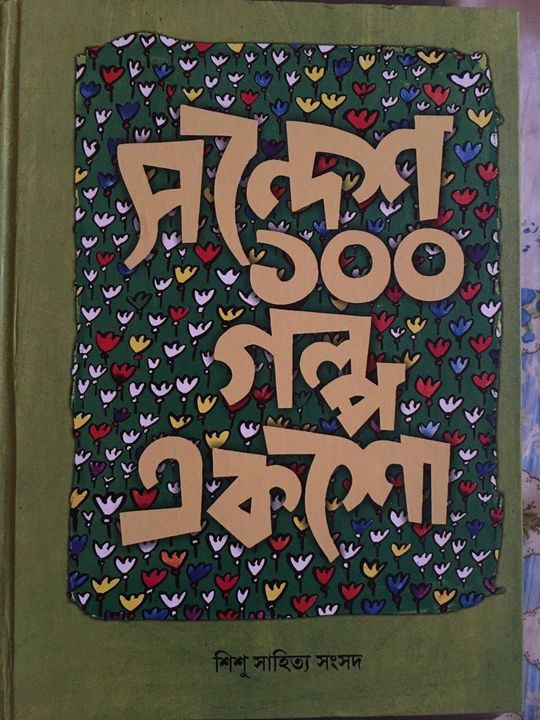 সন্দেশ
১০০
গল্প
একশো
শিশু সাহিত্য সংসদ